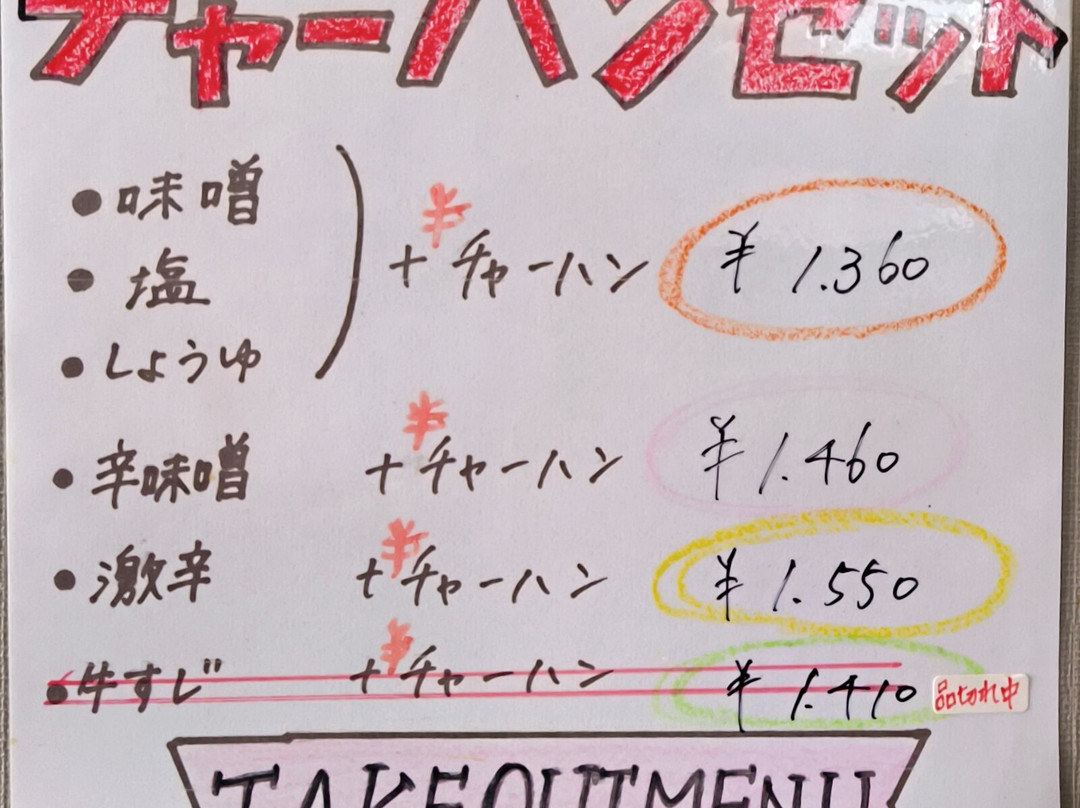 チャーハンセット
● 味噌
● 塩
● しょうゆ
+半チャーハン ¥1.360
● 辛味噌 +半チャーハン ¥1.460
● 激辛 +半チャーハン ¥1.550
● 牛すじ +半チャーハン ¥1.410 品切れ中
TAKEOUTMENU